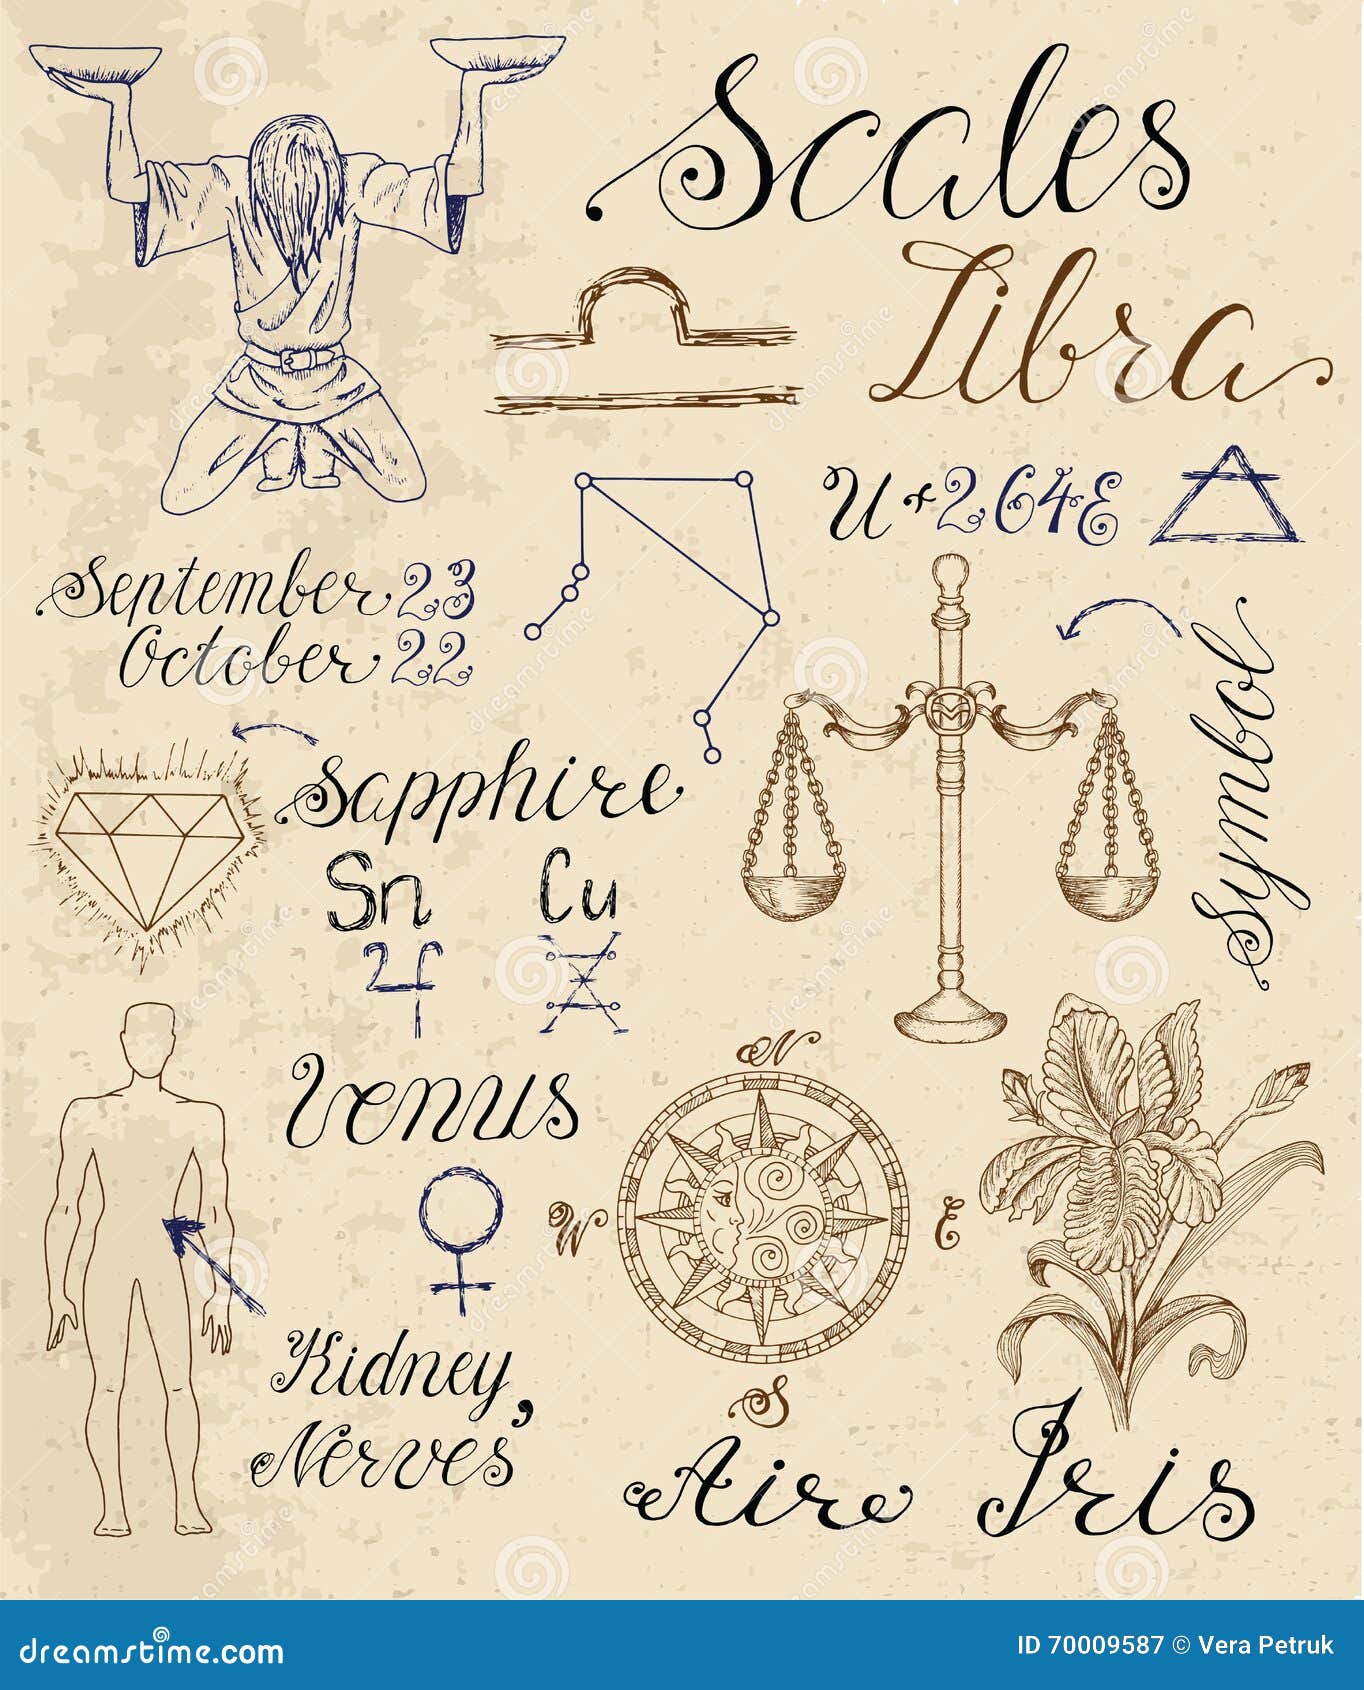 Scales
Libra
U+264E
September 23
October 22
Symbol
Sapphire
Sn Cu
Venus
N
W
E
S
Kidney,
Nerves
Aire
Iris
dreamstime.com
ID 70009587 © Vera Petruk